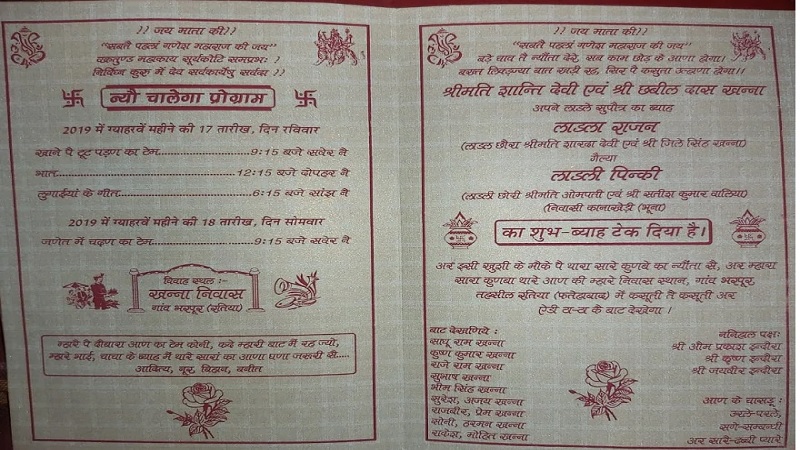 ?? जय माता की??
“सबतै पहल्यां गणेश महाराज की जय”
वक्रतुण्ड महाकाय सूर्यकोटि समप्रभः ?
निर्विघ्न कुरू मे देव सर्वकार्येषु सर्वदा ??
न्यौ चालेगा प्रोग्राम
2019 में ग्याहरवें महीने की 17 तारीख, दिन रविवार
खाने पै टूट पड़ण का टेम 9:15 बजे सवेर नै
भात 12:15 बजे दोपहर नै
लुगाईयां के गीत 6:15 बजे सांझ नै
2019 में ग्याहरवें महीने की 18 तारीख, दिन सोमवार
जणेत में चढ़ण का टेम 9:15 बजे सवेर नै
विवाह स्थल :-
खन्ना निवास
गांव भरपूर (रतिया)
म्हारै पै दोबारा आण का टेम कोनी, कदे म्हारी बाट में रह ज्यो,
म्हारे भाई, चाचा के ब्याह में थारे सारां का आणा घणा जरूरी सै.....
आदित्य, नूर, विहान, वनीत
?? जय माता की ??
“सबतै पहल्यां गणेश महाराज की जय”
बड़े चाव तै न्यौता देरे, सब काम छोड़ के आणा होगा।
बखत लिकड़ज्या बात खड़ी रह, सिर पै कसुता उल्हाणा होगा।।
श्रीमति शान्ति देवी एवं श्री छबील दास खन्ना
अपने लाडले सुपौत्र का ब्याह
लाडला राजन
(लाडल छौरा श्रीमति शारदा देवी एवं श्री जिले सिंह खन्ना)
गैल्या
लाडली पिन्की
(लाडली छोरी श्रीमति ओमपती एवं श्री सतीश कुमार वालिया)
(निवासी कानाखेड़ी (भूना)
का शुभ-ब्याह टेक दिया है।
अर इसी खुशी के मौके पै थारा सारे कुणबे का न्यौंता सै, अर म्हारा
सारा कुणबा थारे आण की म्हारे निवास स्थान, गांव भरपूर,
तहसील रतिया (फतेहाबाद) में कसूती तै कसूती अर
ऐडी ठा-ठा के बाट देखेगा ।
बाट देखणिये :
साधू राम खन्ना
कृष्ण कुमार खन्ना
राजे राम खन्ना
सुभाष खन्ना
भीम सिंह खन्ना
सुरेश, अजय खन्ना
राजबीर, प्रेम खन्ना
सोनी, हरमन खन्ना
राकेश, मोहित खन्ना
ननिहाल पक्षः
श्री ओम प्रकाश इन्दौरा
श्री कृष्ण इन्दौरा
श्री जयवीर इन्दौरा
आण के चासडू :
उरले-परले,
सगे-सम्बन्धी
अर सारे-ढब्बी प्यारे